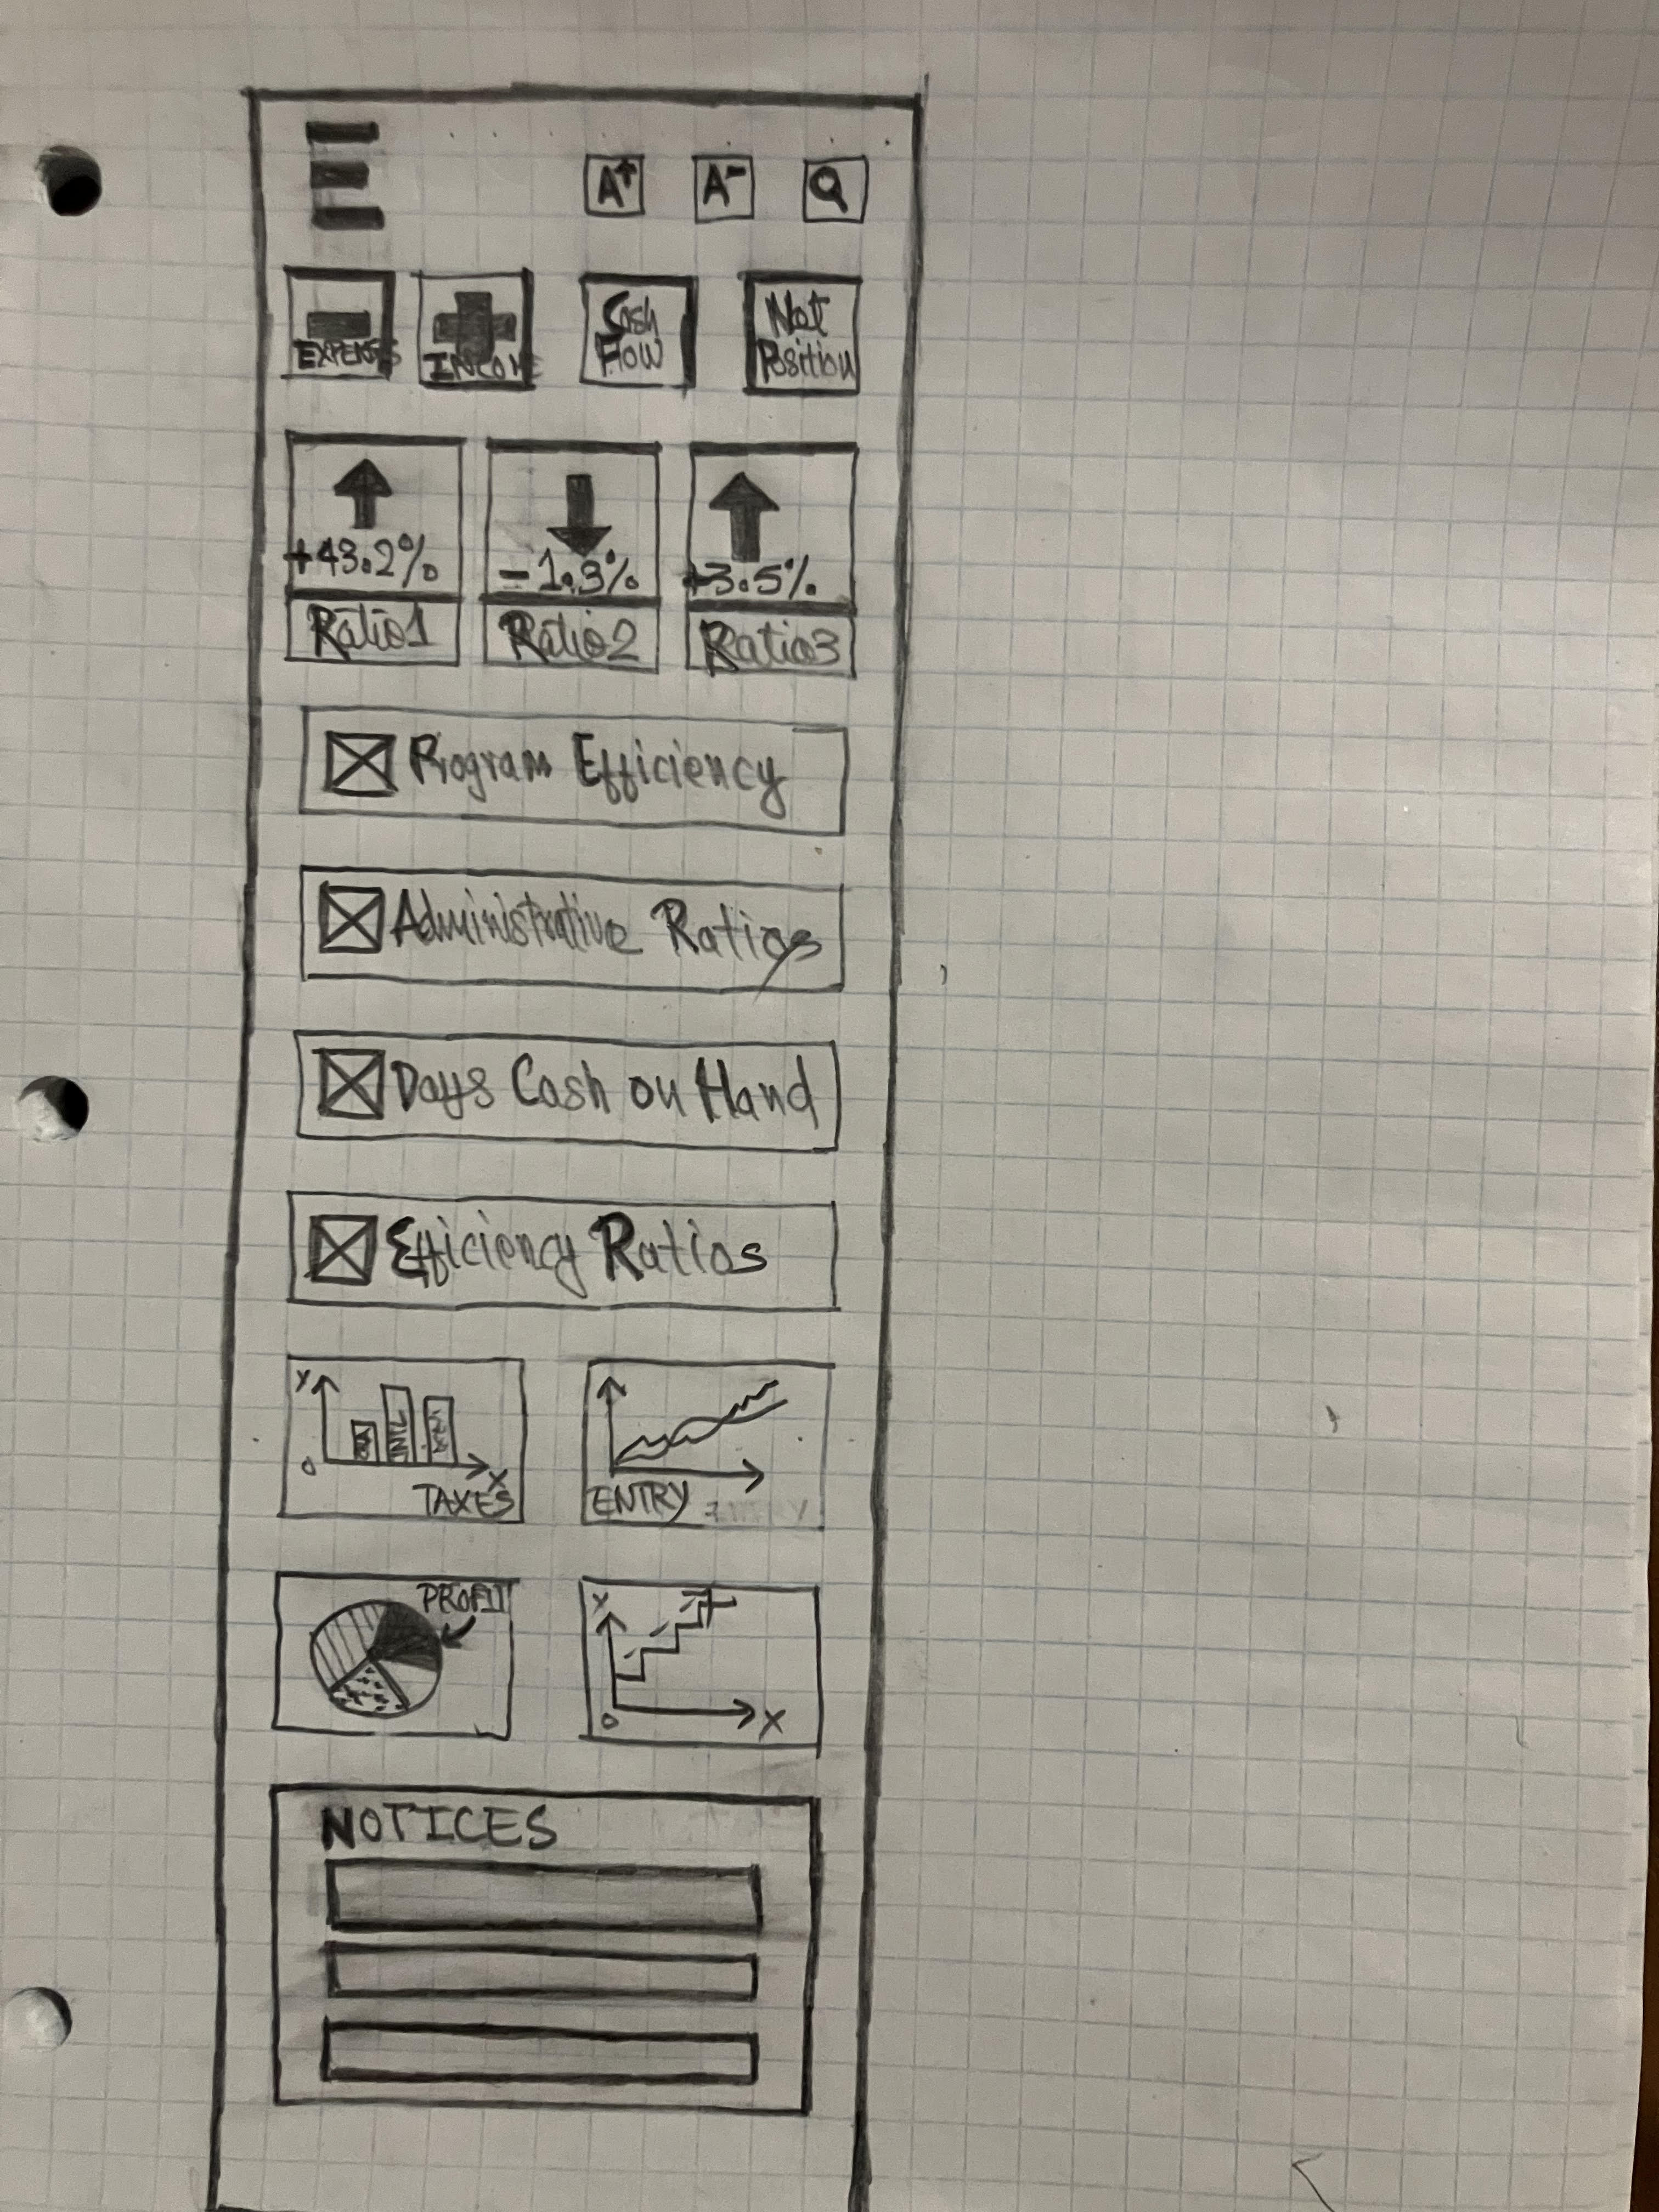 A+ A-
EXPENSES
INCOME
Cash
Flow
Net
Position
+43.2%
-1.3%
+3.5%
Ratio1
Ratio2
Ratio3
Program Efficiency
Administrative Ratios
Days Cash on Hand
Efficiency Ratios
Y
INTL
0
X
TAXES
ENTRY
PROFIT
Y
0
X
NOTICES